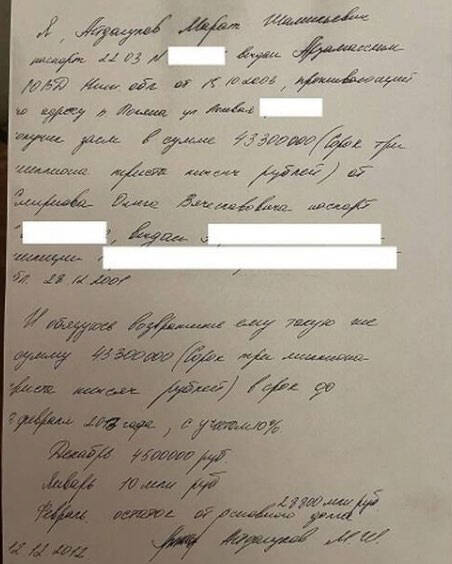 Я, Айдалуков Марат Шамильевич
паспорт 22 03 N выдан Арзамасским
ЮВД Ниж. обл от 15.10.2003, проживающий
по адресу п. ул
получил заем в сумме 43300000 (Сорок три
миллиона триста тысяч рублей) от
Смирнова Олега Вячеславовича паспорт
, выдан
28.12.2001
И обязуюсь возвратить ему такую же
сумму 43300000 (Сорок три миллиона
триста тысяч рублей) в срок до
февраля 2013 года, с учетом 10%
Декабрь 4500000 руб
Январь 10 млн руб
28800 млн руб.
Февраль остаток от основного долга
12.12.2012 Айдалуков М Ш